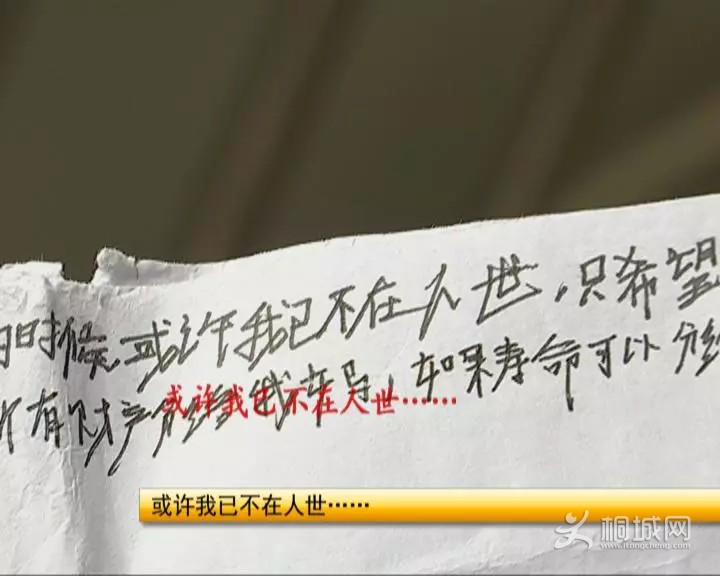 时候,或许我已不在人世,只希望
有财产分给我
如果寿命可以分给
或许我已不在人世……
或许我已不在人世……
桐城网
www.itongcheng.com